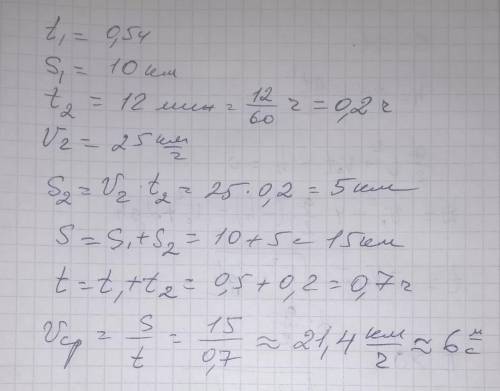 t₁ = 0,5ч
S₁ = 10 км
t₂ = 12 мин = 12/60 ч = 0,2 ч
V₂ = 25 км/ч
S₂ = V₂ t₂ = 25 · 0,2 = 5 км
S = S₁ + S₂ = 10 + 5 = 15 км
t = t₁ + t₂ = 0,5 + 0,2 = 0,7 ч
Vср = S/t = 15/0,7 ≈ 21,4 км/ч ≈ 6 м/с